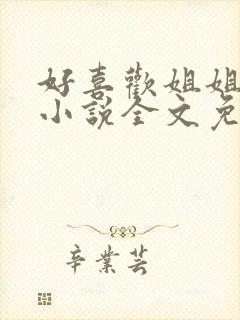 好喜歡姐姐
小說全文免
辛業芸